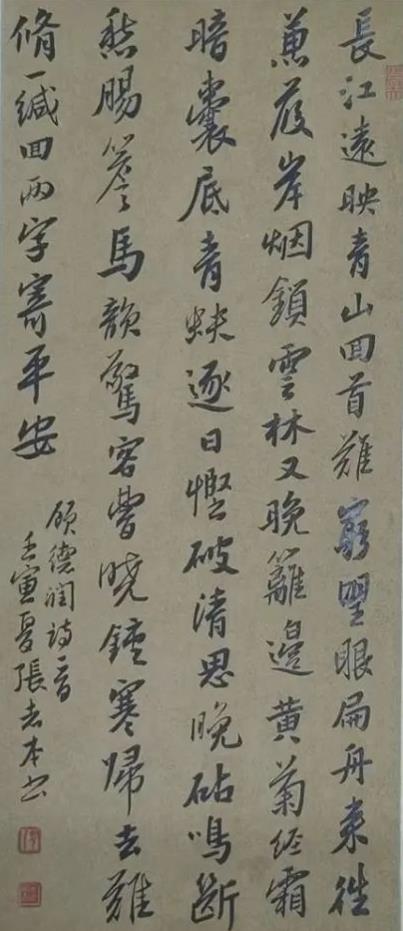 長江遠映青山回首難窮望眼扁舟來往
蒹葭岸烟鎖雲林又晚籬邊黄菊經霜
暗囊底青蚨逐日慳破清思晚砧鳴斷
愁腸簷馬韻驚客夢曉鐘寒歸去難
脩一緘回兩字寄平安
顧德潤詩一首
壬寅夏張志本书